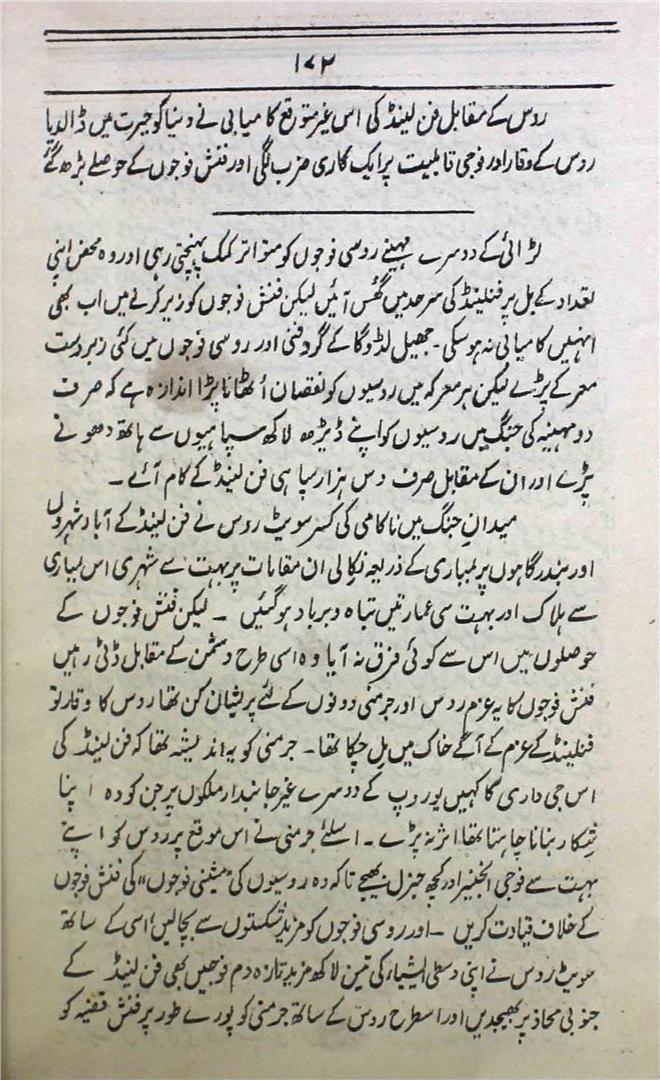 ۱۷۲
روس کے مقابل فن لینڈ کی اس غیر متوقع کامیابی نے دنیا کو حیرت میں ڈالدیا
روس کے وقار اور فوجی قابلیت پر ایک کاری ضرب لگی اور فنش فوجوں کے حوصلے بڑھ گئے
لڑائی کے دوسرے مہینے روسی فوجوں کو متواتر کمک پہنچتی رہی اور وہ محض اپنی
تعداد کے بل پر فنلینڈ کی سرحد میں گھس آئیں لیکن فنش فوجوں کو زیر کرنے میں اب بھی
انہیں کامیابی نہ ہو سکی ۔ جھیل لڈوگا کے گرد فنی اور روسی فوجوں میں کئی زبردست
معرکے پڑے لیکن ہر معرکہ میں روسیوں کو نقصان اُٹھانا پڑا اندازہ ہے کہ صرف
دو مہینہ کی جنگ میں روسیوں کو اپنے ڈیڑھ لاکھ سپاہیوں سے ہاتھ دھونے
پڑے اور ان کے مقابل صرف دس ہزار سپاہی فن لینڈ کے کام آئے ۔
میدانِ جنگ میں ناکامی کی کسر سویٹ روس نے فن لینڈ کے آباد شہروں
اور بندرگاہوں پر بمباری کے ذریعہ نکالی ان مقامات پر بہت سے شہری اس بمباری
سے ہلاک اور بہت سی عمارتیں تباہ و برباد ہو گئیں ۔ لیکن فنش فوجوں کے
حوصلوں میں اس سے کوئی فرق نہ آیا وہ اسی طرح دشمن کے مقابل ڈٹی رہیں
فنش فوجوں کا یہ عزم روس اور جرمنی دونوں کے لئے پریشان کن تھا روس کا وقار تو
فنلینڈ کے عزم کے آگے خاک میں مل چکا تھا ۔ جرمنی کو یہ اندیشہ تھا کہ فن لینڈ کی
اس جی داری کا کہیں یوروپ کے دوسرے غیر جانبدار ملکوں پر جن کو وہ اپنا
شکار بنانا چاہتا تھا اثر نہ پڑے ۔ اسلئے جرمنی نے اس موقع پر روس کو اپنے
بہت سے فوجی انجنیر اور کچھ جنرل بھیجے تاکہ وہ روسیوں کی "مشینی فوجوں" کی فنش فوجوں
کے خلاف قیادت کریں ۔ اور روسی فوجوں کو مزید شکستوں سے بچالیں اسی کے ساتھ
سویٹ روس نے اپنی وسطی ایشیاء کی تین لاکھ مزید تازہ دم فوجیں بھی فن لینڈ کے
جنوبی محاذ پر بھیجدیں اور اسطرح روس کے ساتھ جرمنی کو پورے طور پر فنش قضیہ کو